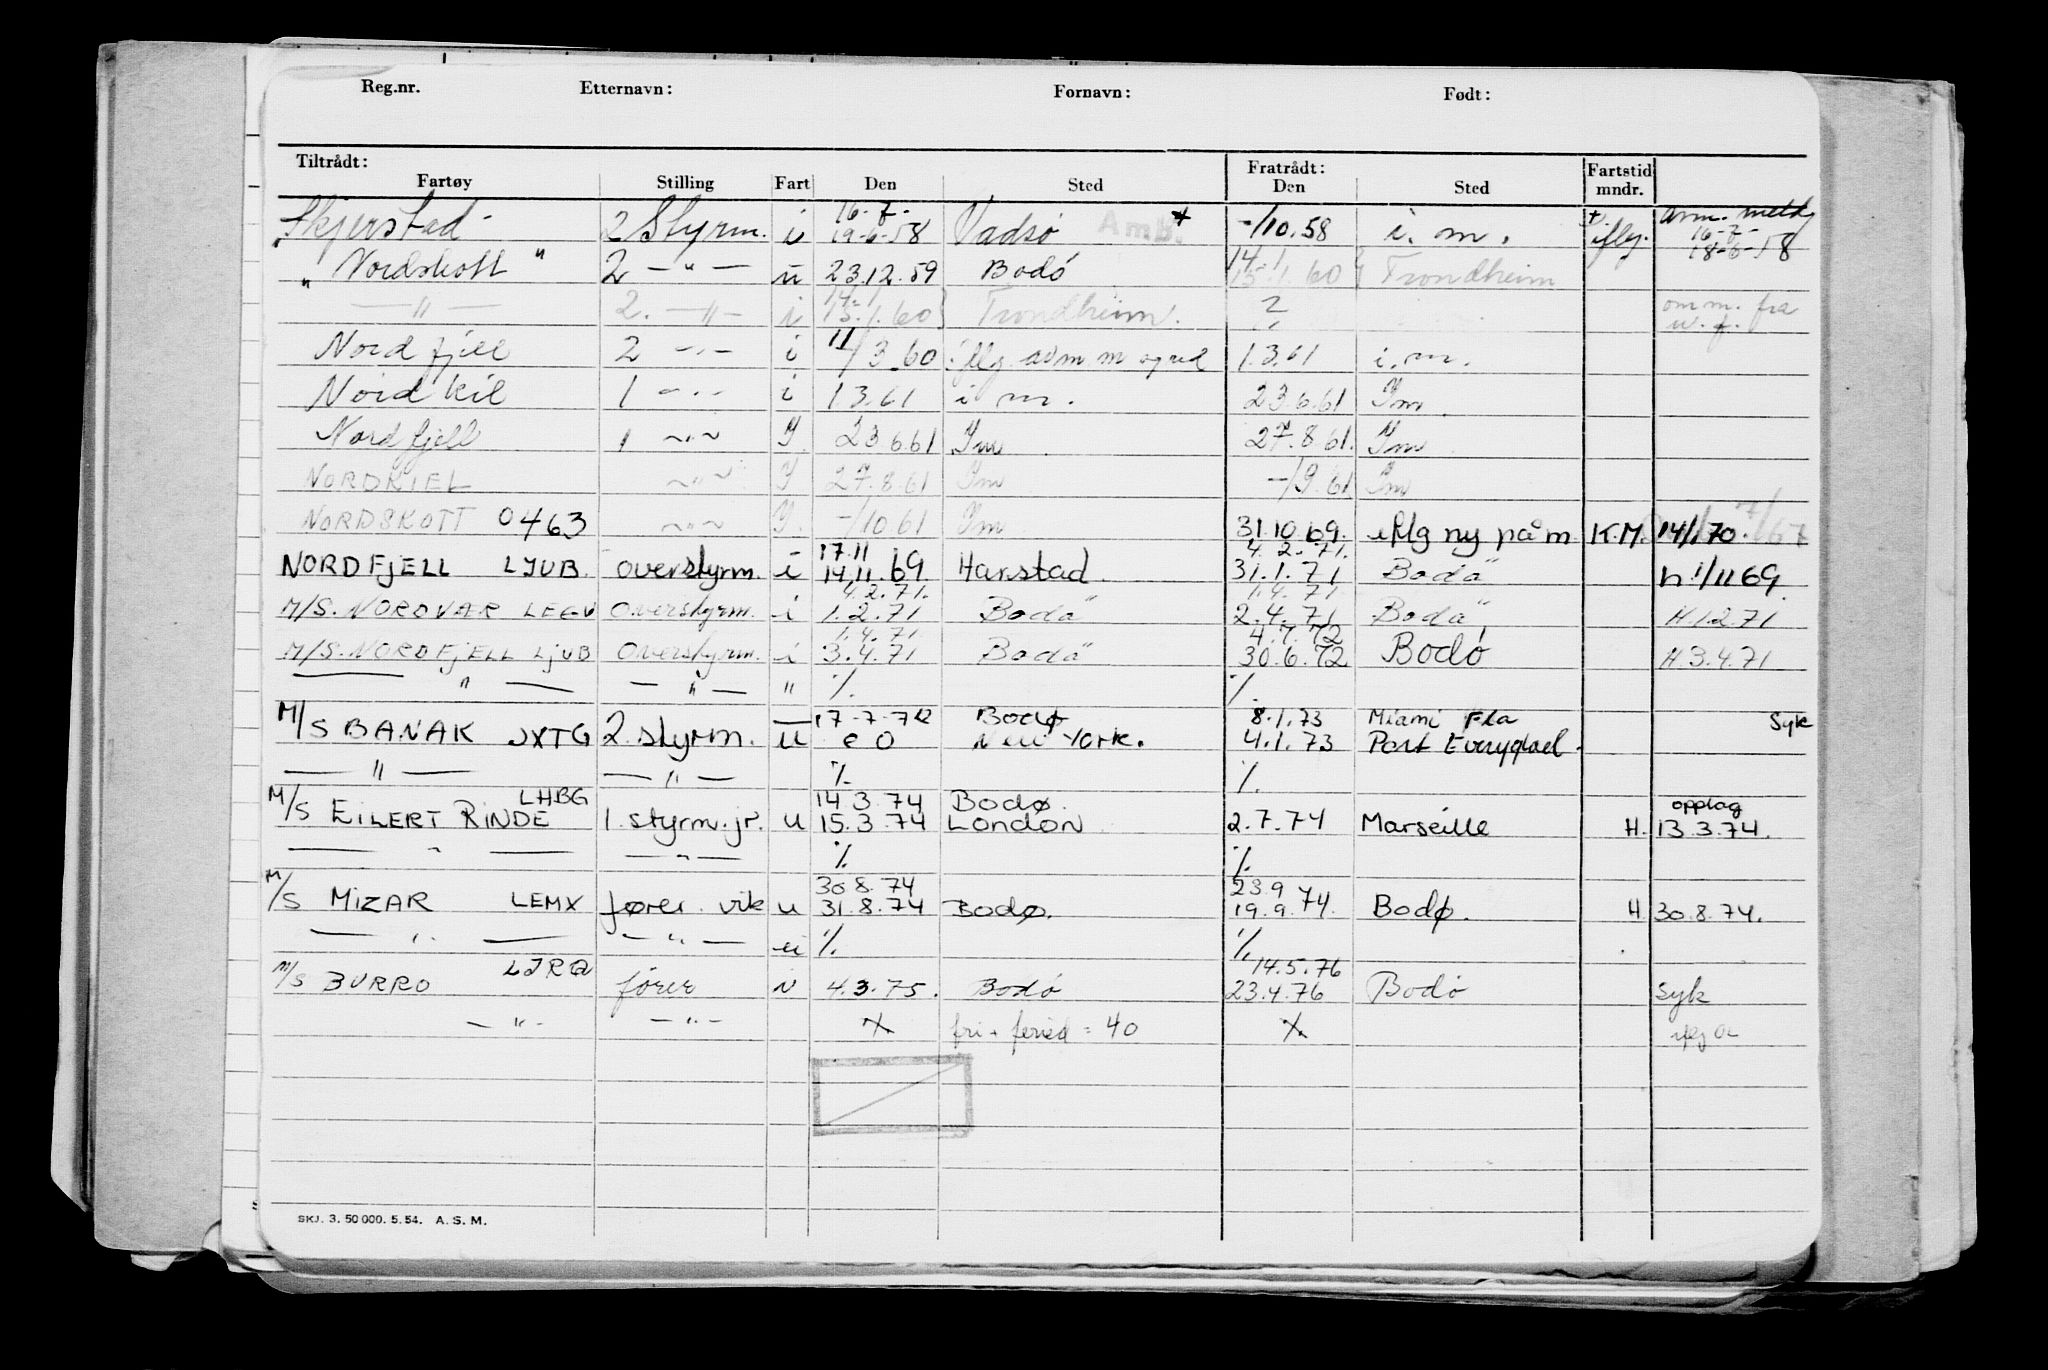 Reg.nr. Etternavn: Fornavn: Født:
Tiltrådt: Fratrådt: Fartstid
Fartøy Stilling Fart Den Sted Den Sted mndr.
Skjerstad 2 Styrm. i 16-7- 19-6-58 Vadsø Amb. + -/10.58 i. m. + iflg. 16-7- 18-6-58
"Nordskott" 2 -"- u 23.12.59 Bodó 14.1 15.1.60 Trondheim
-"- 2. -"- i 14. 15.1.60 Trondheim. ? omm. fra u. f.
Nordfjell 2 -"- i 11/3.60 iflg. adm m og ved 1.3.61 i. m.
Nordkil 1 -"- i 1 3.61 i m. 23.6.61 Im.
Nordfjell 1 ~"~ I 23 6.61 Im 27.8 61. Im
NORDKIEL ~"~ I 27.8.61 Im -/9.61 Im
NORDSKOTT 0463 ~"~ I. -/10.61 Im 31.10.69. iflg ny på m K.M. 14/1.70.
NORDFJELL LJUB. overstyrm. i 17.11 14.11.69 Harstad. 4.2.71. 31.1.71 Bodö h 1/11 69.
M/S. NORDVÆR LEGV Overstyrm. i 4.2.71. 1.2.71 Bodö 1.4.71 2.4.71 Bodö H.1.2.71
M/S. NORDFJELL LJUB Overstyrm. i 1.4.71 3.4.71 Bodö 4.7.72 30.6.72 Bodó H.3.4.71
-"- -"- " %. %.
M/S BANAK JXTG 2 styrm. u 17-7-72 e 0 Bodø New York. 8.1.73 4.1.73 Miami Fla Port Everyglad. Syk
-"- -"- %. %.
M/S EILERT RINDE LHBG 1. styrm. jr. u 14.3.74 15.3.74 Bodø. London 2.7.74 Marseille H. opplag 13.3.74.
-"- -"- %. %.
M/S MIZAR LEMX fører vik u 30.8.74 31.8.74 Bodø. 23.9 19.9.74. Bodø. H 30.8.74.
-"- -"- u %. %.
M/S BURRO LJRQ fører i 4.3.75. Bodó 14.5.76 23.4.76 Bodó syk
-"- -"- % fri + feried = 40 %
SKJ. 3. 50 000. 5. 54. A. S. M.